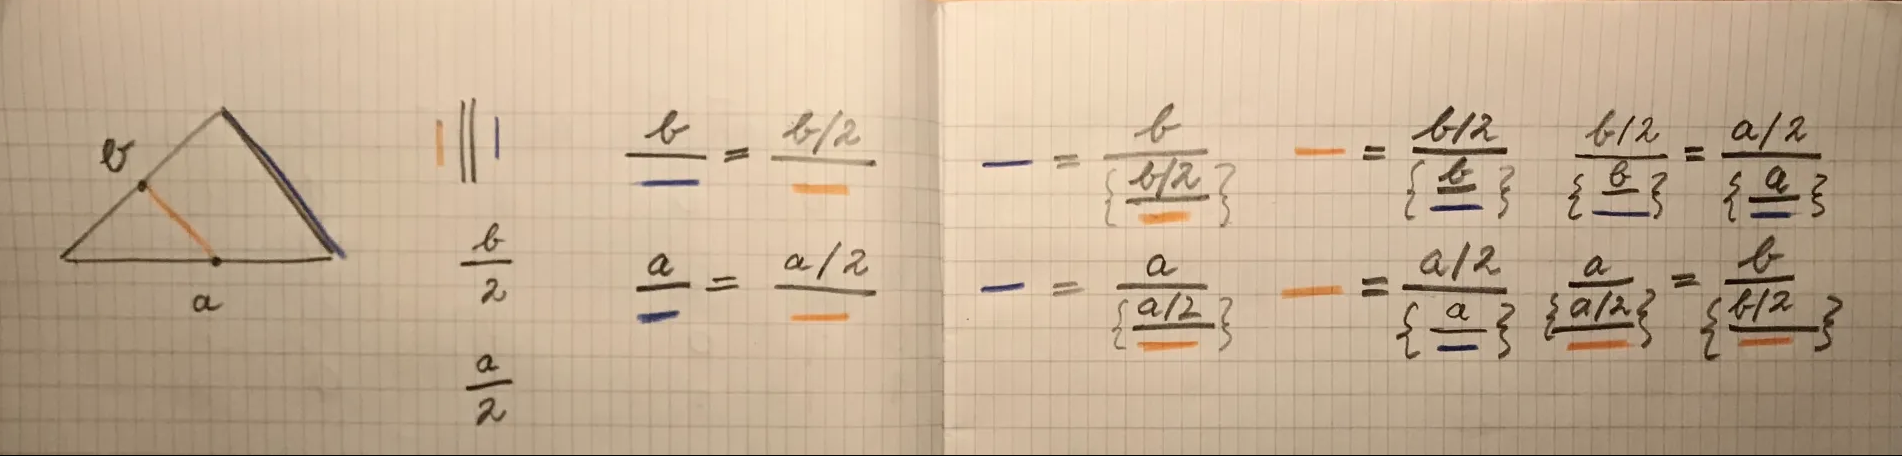 b
a
||
b/2
a/2
b/— = (b/2)/—
a/— = (a/2)/—
— = b/{(b/2)/—}
— = a/{(a/2)/—}
— = (b/2)/{b/—}
— = (a/2)/{a/—}
(b/2)/{b/—} = (a/2)/{a/—}
a/{(a/2)/—} = b/{(b/2)/—}